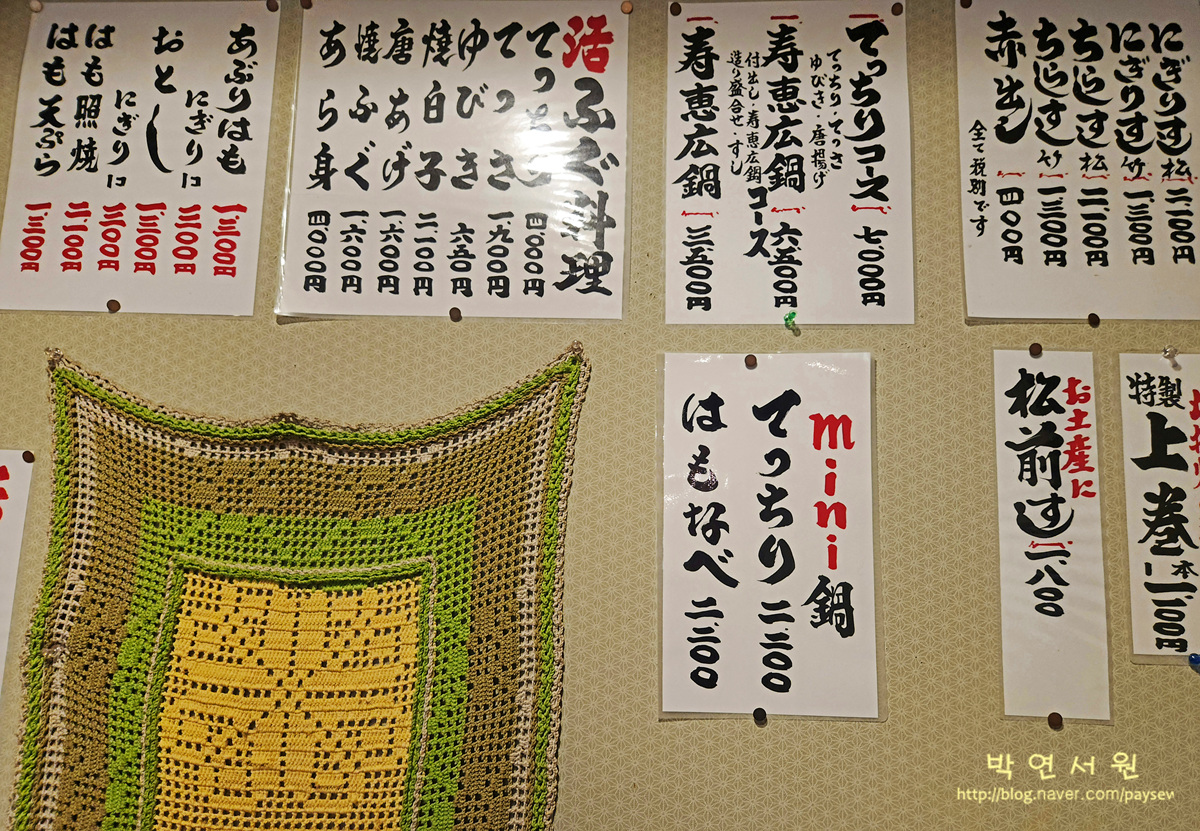 にぎりすし 松 二、一〇〇円
にぎりすし 竹 一、三〇〇円
ちらしすし 松 二、一〇〇円
ちらしすし 竹 一、三〇〇円
赤出し 四〇〇円
全て税別です
てっちりコース 七、〇〇〇円
てっちり・てっさ
ゆびき・唐揚げ
寿恵広鍋コース 六、五〇〇円
付出し・寿恵広鍋
造り盛合せ・すし
寿恵広鍋 三、五〇〇円
活ふぐ料理
てっちり 四、〇〇〇円
てっさ 一、九〇〇円
ゆびき 六五〇円
焼白子 二、一〇〇円
唐あげ 一、六〇〇円
焼ふぐ 一、六〇〇円
あら身 四、〇〇〇円
あぶりはも 一、三〇〇円
にぎりに
おとし 一、三〇〇円
にぎりに
はも照焼 二、一〇〇円
はも天ぷら 一、三〇〇円
特製
上巻 一本
お土産に
松前すし 二、八〇〇
mini鍋
てっちり 二、三〇〇
はもなべ 二、三〇〇
박연서원
http://blog.naver.com/paysew